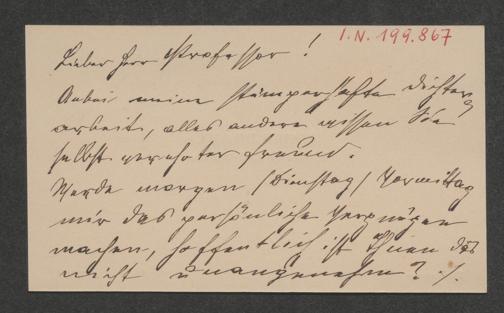 I.N. 199.867
Lieber Herr Professor!
Anbei meine stümperhafte Dichter
arbeit, alles andere wissen Sie
selbst verehrter Freund.
Werde morgen /Dienstag/ Vormittag
mir das persönliche Vergnügen
machen, hoffentlich ist Ihnen das
nicht unangenehm? ./.